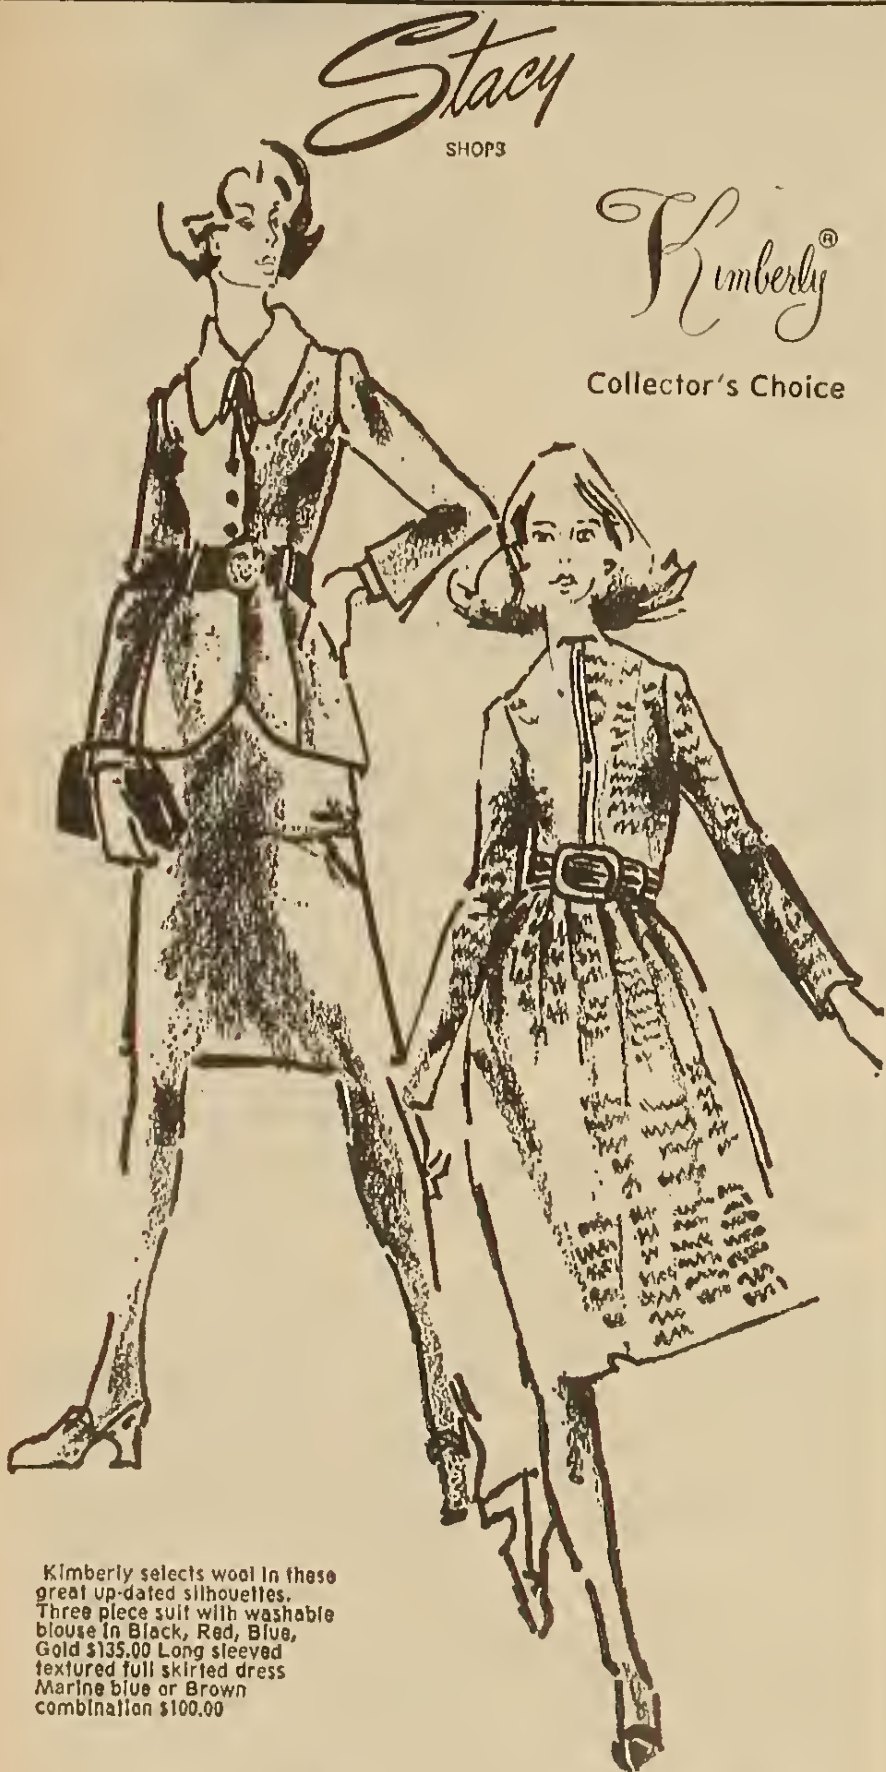 Stacy
SHOPS
Kimberly®
Collector's Choice
Kimberly selects wool in these
great up-dated silhouettes.
Three piece suit with washable
blouse in Black, Red, Blue,
Gold $135.00 Long sleeved
textured full skirted dress
Marine blue or Brown
combination $100.00